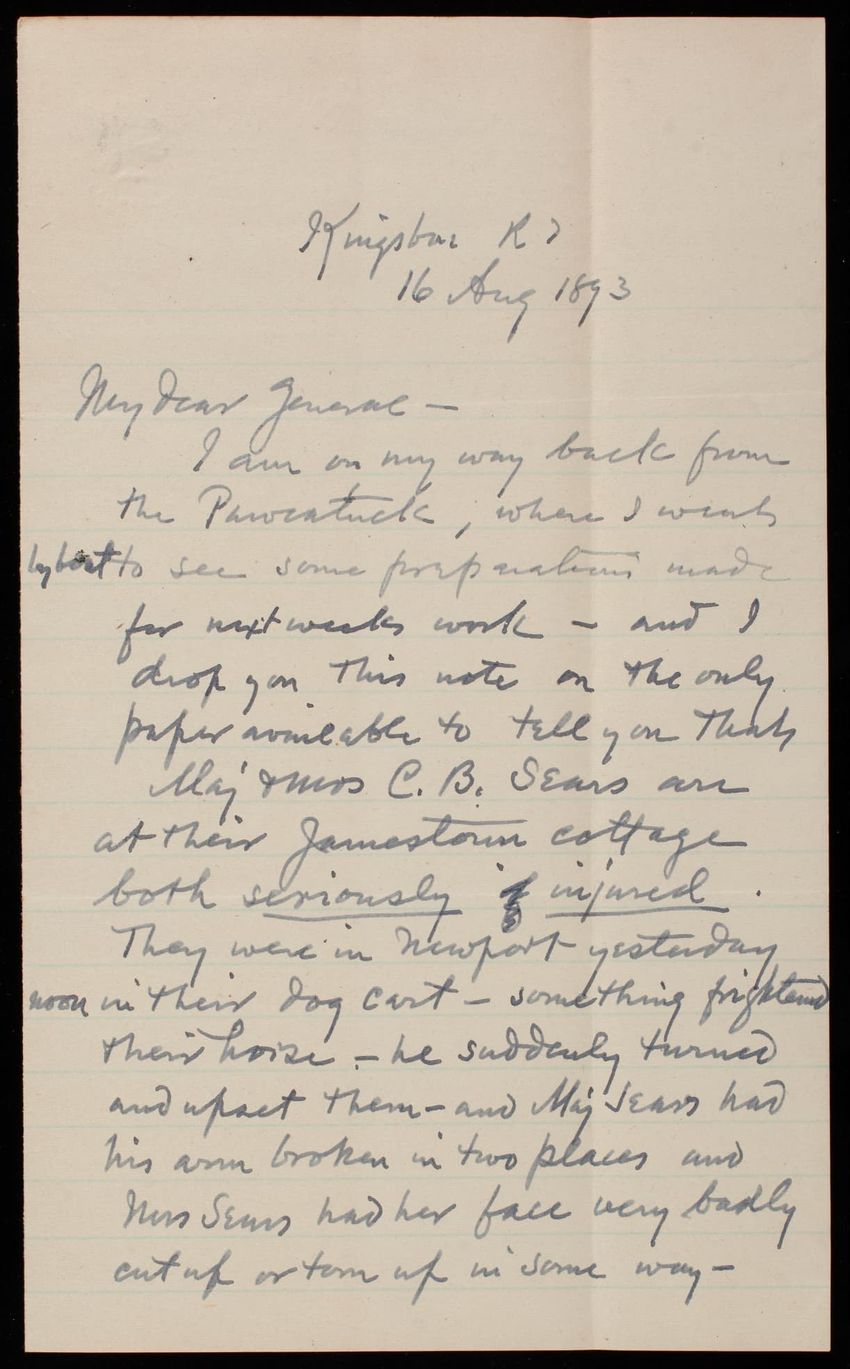 Kingston R I
16 Aug 1893
My dear General —
I am on my way back from
the Pawcatuck, where I went
by boat to see some preparations made
for next weeks work — and I
drop you this note on the only
paper available to tell you that
Maj & Mrs C. B. Sears are
at their Jamestown cottage
both seriously injured.
They were in Newport yesterday
noon in their dog cart — something frightened
their horse — he suddenly turned
and upset them — and Maj Sears had
his arm broken in two places and
Mrs Sears had her face very badly
cut up or torn up in some way —